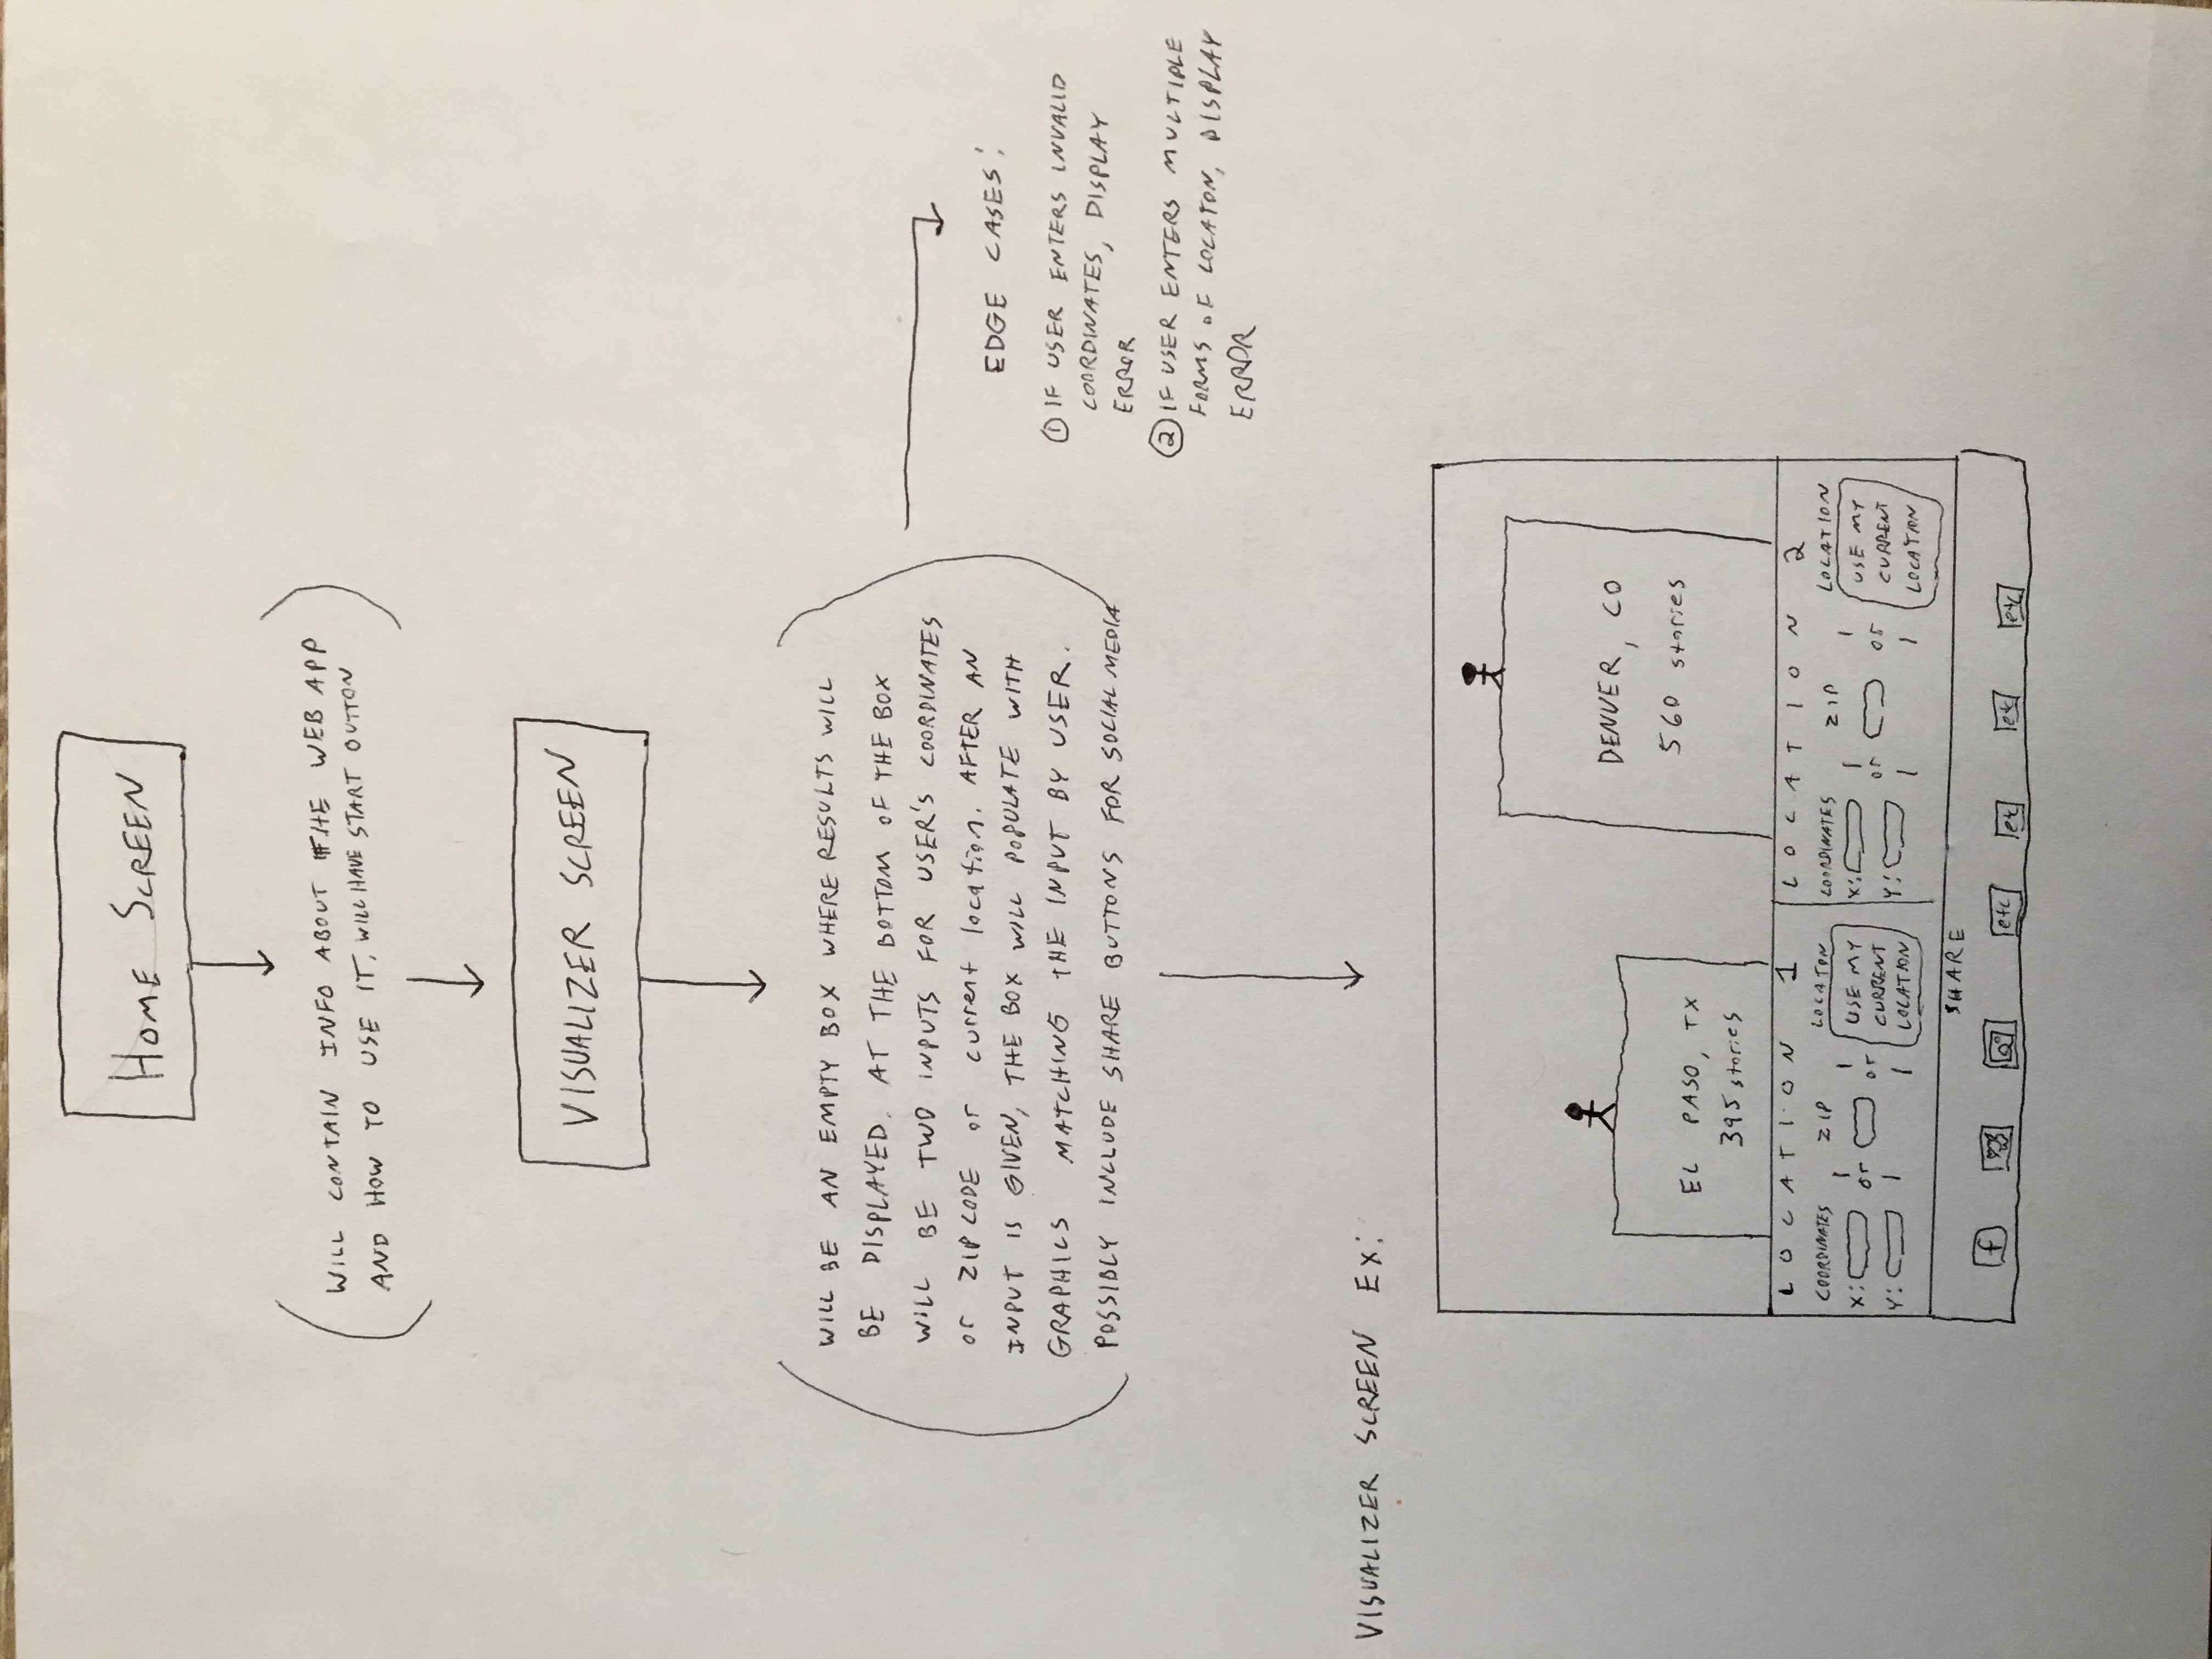 HOME SCREEN
WILL CONTAIN INFO ABOUT THE WEB APP
AND HOW TO USE IT, WILL HAVE START OUTTON
VISUALIZER SCREEN
WILL BE AN EMPTY BOX WHERE RESULTS WILL
BE DISPLAYED. AT THE BOTTOM OF THE BOX
WILL BE TWO INPUTS FOR USER'S COORDINATES
or ZIP CODE or current location. AFTER AN
INPUT IS GIVEN, THE BOX WILL POPULATE WITH
GRAPHICS MATCHING THE INPUT BY USER.
POSSIBLY INCLUDE SHARE BUTTONS FOR SOCIAL MEDIA
EDGE CASES:
① IF USER ENTERS INVALID
COORDINATES, DISPLAY
ERROR
② IF USER ENTERS MULTIPLE
FORMS OF LOCATON, DISPLAY
ERROR
VISUALIZER SCREEN EX:
EL PASO, TX
395 stories
DENVER, CO
560 stories
LOCATION 1
COORDINATES ZIP LOCATON
X: or or USE MY
Y: CURRENT
LOCATION
LOCATION 2
COORDINATES ZIP LOCATION
X: or or USE MY
Y: CURRENT
LOCATION
SHARE
f etc etc etc etc